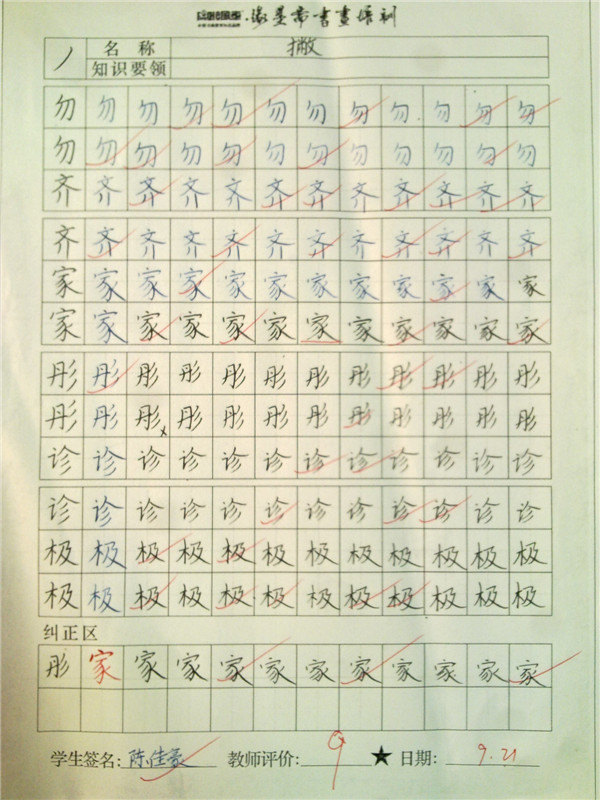 書畫培训
丿 名称 撇
知识要领
勿 勿 勿 勿 勿 勿 勿 勿 勿 勿 勿 勿
勿 勿 勿 勿 勿 勿 勿 勿 勿 勿 勿 勿
齐 齐 齐 齐 齐 齐 齐 齐 齐 齐 齐 齐
齐 齐 齐 齐 齐 齐 齐 齐 齐 齐 齐 齐
家 家 家 家 家 家 家 家 家 家 家 家
家 家 家 家 家 家 家 家 家 家 家 家
彤 彤 彤 彤 彤 彤 彤 彤 彤 彤 彤 彤
彤 彤 彤 彤 彤 彤 彤 彤 彤 彤 彤 彤
诊 诊 诊 诊 诊 诊 诊 诊 诊 诊 诊 诊
诊 诊 诊 诊 诊 诊 诊 诊 诊 诊 诊 诊
极 极 极 极 极 极 极 极 极 极 极 极
极 极 极 极 极 极 极 极 极 极 极 极
纠正区
彤 家 家 家 家 家 家 家 家 家 家 家
学生签名: 陈佳豪 教师评价: 9 ★ 日期: 9.21